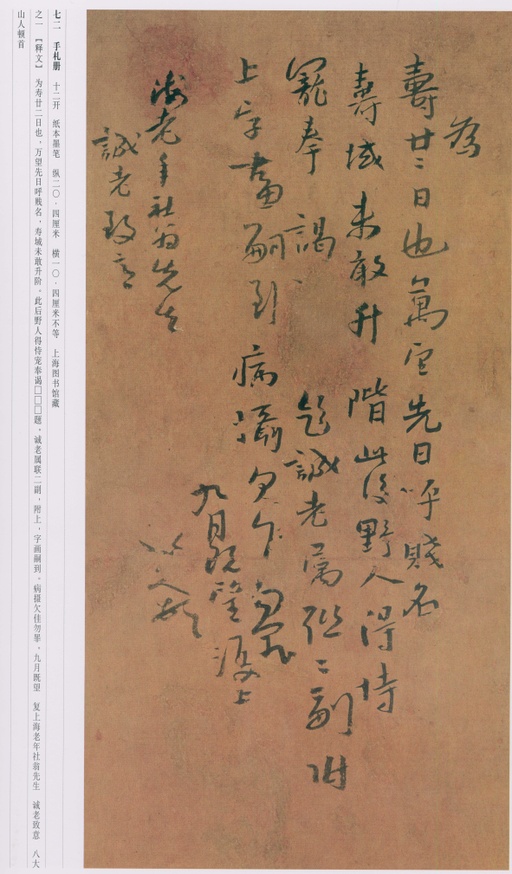 为
寿廿二日也万望先日呼贱名
寿域未敢升阶此后野人得恃
宠奉谒 题诚老属联二副附
上字画嗣到病摄欠佳勿罪
九月既望复上
海老年社翁先生
诚老致意
八大山人顿首
七二 手札册 十二开 纸本墨笔 纵二〇·四厘米 横一〇·四厘米不等 上海图书馆藏
之一 【释文】 为寿廿二日也，万望先日呼贱名，寿域未敢升阶。此后野人得恃宠奉谒□□□题。诚老属联二副，附上，字画嗣到。病摄欠佳勿罪。九月既望 复上海老年社翁先生 诚老致意 八大
山人顿首